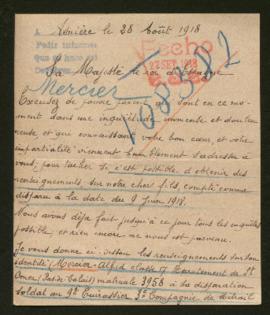 le 28 Août 1918
Fecho
27 SET. 1918
Pedir informes
Sa Majesté le roi d'Espagne
Mercier
Excusez de pauvre parents dont en ce mo-
ment dans une inquiétude
rende et qui connaissant votre bon cœur, et votre
impartialité viennent humblement s'adresser à
vous, pour tâcher si c'est possible d'obtenir des
renseignements sur notre cher fils, compté comme
disparu à la date du 9 Juin 1918.
Nous avons déjà fait jusqu'à ce jour tous les enquêtes
possible, et rien encore ne nous est parvenu.
Je vous donne ci-dessous les renseignements sur son
identité (Mercier Alfred classe 17 Recrutement de St
Omer (Pas-de-Calais) matricule 3956 à la disparition
soldat au 9e Cuirassier 3e Compagnie